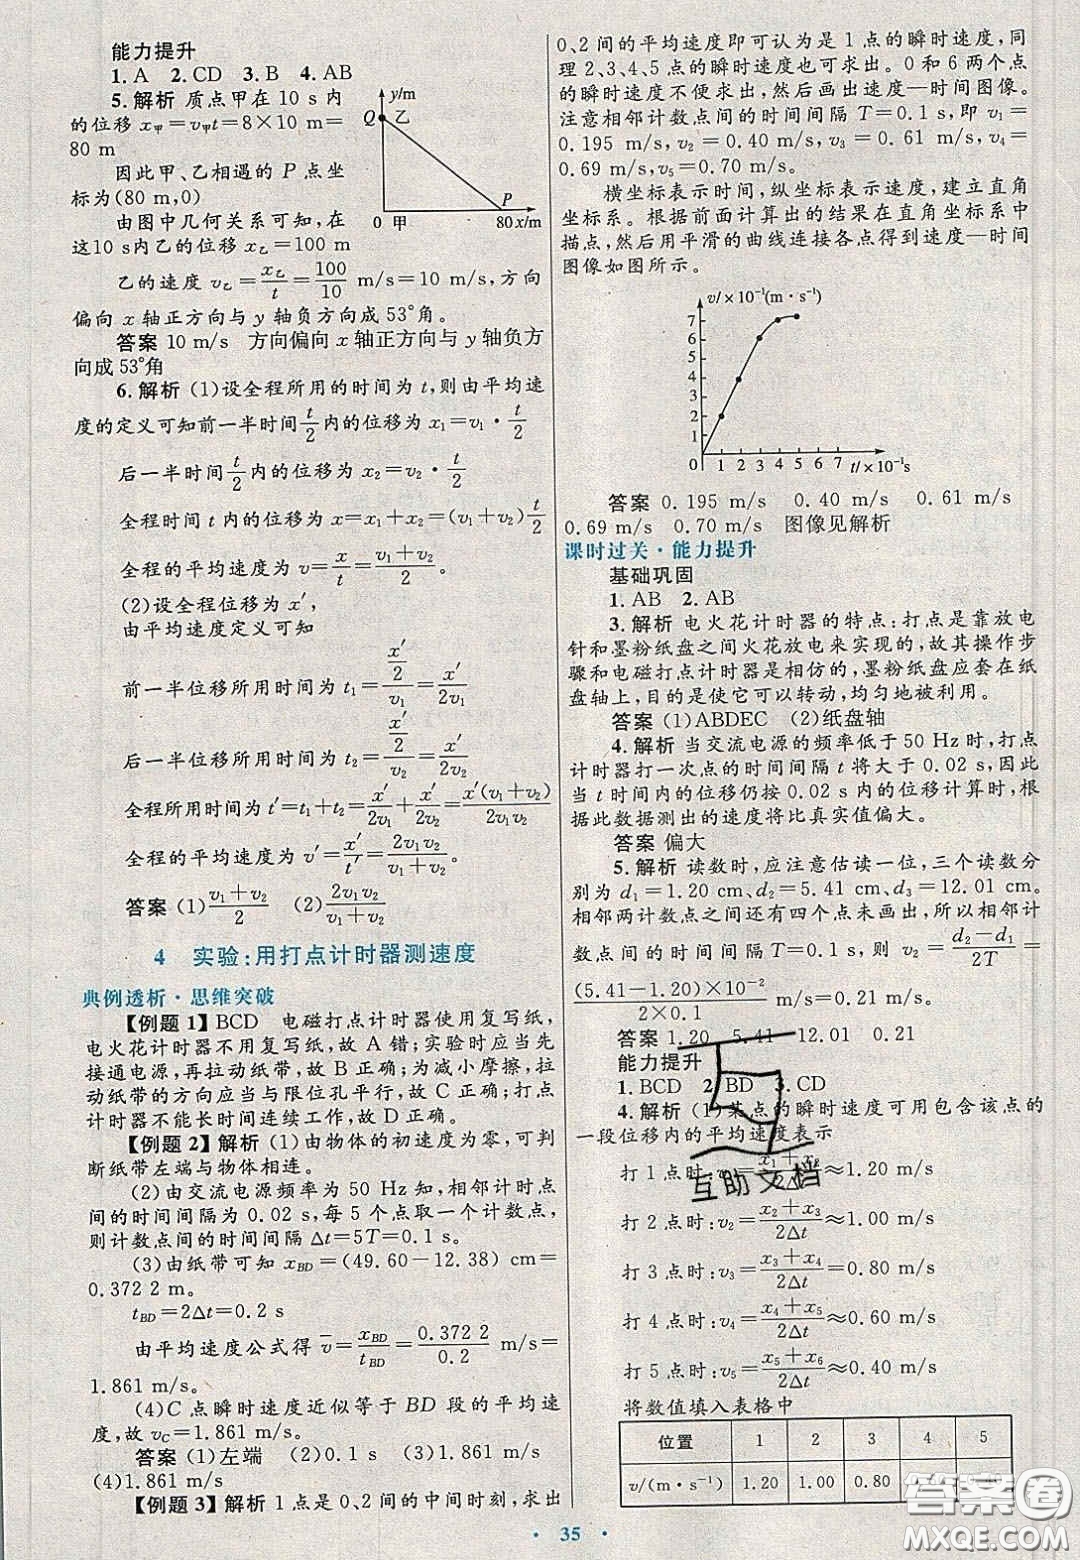 能力提升
1. A  2. CD  3. B  4. AB
5. 解析 质点甲在 10 s 内
的位移 x甲=v甲t=8×10 m=
80 m
因此甲、乙相遇的 P 点坐
标为(80 m,0)
由图中几何关系可知,在
这10 s内乙的位移 x乙=100 m
y/m
Q 乙
P
0 甲 80 x/m
乙的速度 v乙=x乙/t=100/10 m/s=10 m/s,方向
偏向 x 轴正方向与 y 轴负方向成 53°角。
答案 10 m/s 方向偏向 x 轴正方向与 y 轴负方
向成 53°角
6. 解析 (1)设全程所用的时间为 t,则由平均速
度的定义可知前一半时间 t/2 内的位移为 x₁=v₁·t/2
后一半时间 t/2 内的位移为 x₂=v₂·t/2
全程时间 t 内的位移为 x=x₁+x₂=(v₁+v₂)t/2
全程的平均速度为 v=x/t=(v₁+v₂)/2。
(2)设全程位移为 x′,
由平均速度定义可知
前一半位移所用时间为 t₁=(x′/2)/v₁=x′/2v₁
后一半位移所用时间为 t₂=(x′/2)/v₂=x′/2v₂
全程所用时间为 t′=t₁+t₂=x′/2v₁+x′/2v₂=x′(v₁+v₂)/2v₁v₂
全程的平均速度为 v′=x′/t′=2v₁v₂/(v₁+v₂)。
答案 (1)(v₁+v₂)/2  (2)2v₁v₂/(v₁+v₂)
4 实验:用打点计时器测速度
典例透析·思维突破
【例题 1】BCD 电磁打点计时器使用复写纸,
电火花计时器不用复写纸,故 A 错;实验时应当先
接通电源,再拉动纸带,故 B 正确;为减小摩擦,拉
动纸带的方向应当与限位孔平行,故 C 正确;打点
计时器不能长时间连续工作,故 D 正确。
【例题 2】解析 (1)由物体的初速度为零,可判
断纸带左端与物体相连。
(2)由交流电源频率为 50 Hz 知,相邻计时点
间的时间间隔为 0.02 s,每 5 个点取一个计数点,
则计数点间的时间间隔 Δt=5T=0.1 s。
(3)由纸带可知 xBD=(49.60-12.38) cm=
0.372 2 m。
tBD=2Δt=0.2 s
由平均速度公式得 v̄=xBD/tBD=0.372 2/0.2 m/s=
1.861 m/s。
(4)C 点瞬时速度近似等于 BD 段的平均速
度,故 vC=1.861 m/s。
答案 (1)左端  (2)0.1 s  (3)1.861 m/s
(4)1.861 m/s
【例题 3】解析 1 点是 0、2 间的中间时刻,求出
0、2 间的平均速度即可认为是 1 点的瞬时速度,同
理 2、3、4、5 点的瞬时速度也可求出。0 和 6 两个点
的瞬时速度不便求出,然后画出速度—时间图像。
注意相邻计数点间的时间间隔 T=0.1 s,即 v₁=
0.195 m/s,v₂=0.40 m/s,v₃=0.61 m/s,v₄=
0.69 m/s,v₅=0.70 m/s。
横坐标表示时间,纵坐标表示速度,建立直角
坐标系。根据前面计算出的结果在直角坐标系中
描点,然后用平滑的曲线连接各点得到速度—时间
图像如图所示。
v/×10⁻¹(m·s⁻¹)
7
6
5
4
3
2
1
0 1 2 3 4 5 6 7 t/×10⁻¹s
答案 0.195 m/s  0.40 m/s  0.61 m/s
0.69 m/s  0.70 m/s  图像见解析
课时过关·能力提升
基础巩固
1. AB  2. AB
3. 解析 电火花计时器的特点:打点是靠放电
针和墨粉纸盘之间火花放电来实现的,故其操作步
骤和电磁打点计时器是相仿的,墨粉纸盘应套在纸
盘轴上,目的是使它可以转动,均匀地被利用。
答案 (1)ABDEC  (2)纸盘轴
4. 解析 当交流电源的频率低于 50 Hz 时,打点
计时器打一次点的时间间隔 t 将大于 0.02 s,因此
当 t 时间内的位移仍按 0.02 s 内的位移计算时,根
据此数据测出的速度将比真实值偏大。
答案 偏大
5. 解析 读数时,应注意估读一位,三个读数分
别为 d₁=1.20 cm、d₂=5.41 cm、d₃=12.01 cm。
相邻两计数点之间还有四个点未画出,所以相邻计
数点间的时间间隔 T=0.1 s,则 v₂=(d₂-d₁)/2T=
(5.41-1.20)×10⁻²/2×0.1 m/s=0.21 m/s。
答案 1.20  5.41  12.01  0.21
能力提升
1. BCD  2. BD  3. CD
4. 解析 (1)某点的瞬时速度可用包含该点的
一段位移内的平均速度表示
打 1 点时:v₁=(x₁+x₂)/2Δt≈1.20 m/s
打 2 点时:v₂=(x₂+x₃)/2Δt≈1.00 m/s
打 3 点时:v₃=(x₃+x₄)/2Δt≈0.80 m/s
打 4 点时:v₄=(x₄+x₅)/2Δt≈0.60 m/s
打 5 点时:v₅=(x₅+x₆)/2Δt≈0.40 m/s
将数值填入表格中
位置 1 2 3 4 5
v/(m·s⁻¹) 1.20 1.00 0.80
互助文档
答案圈
MXQE.COM
· 35 ·